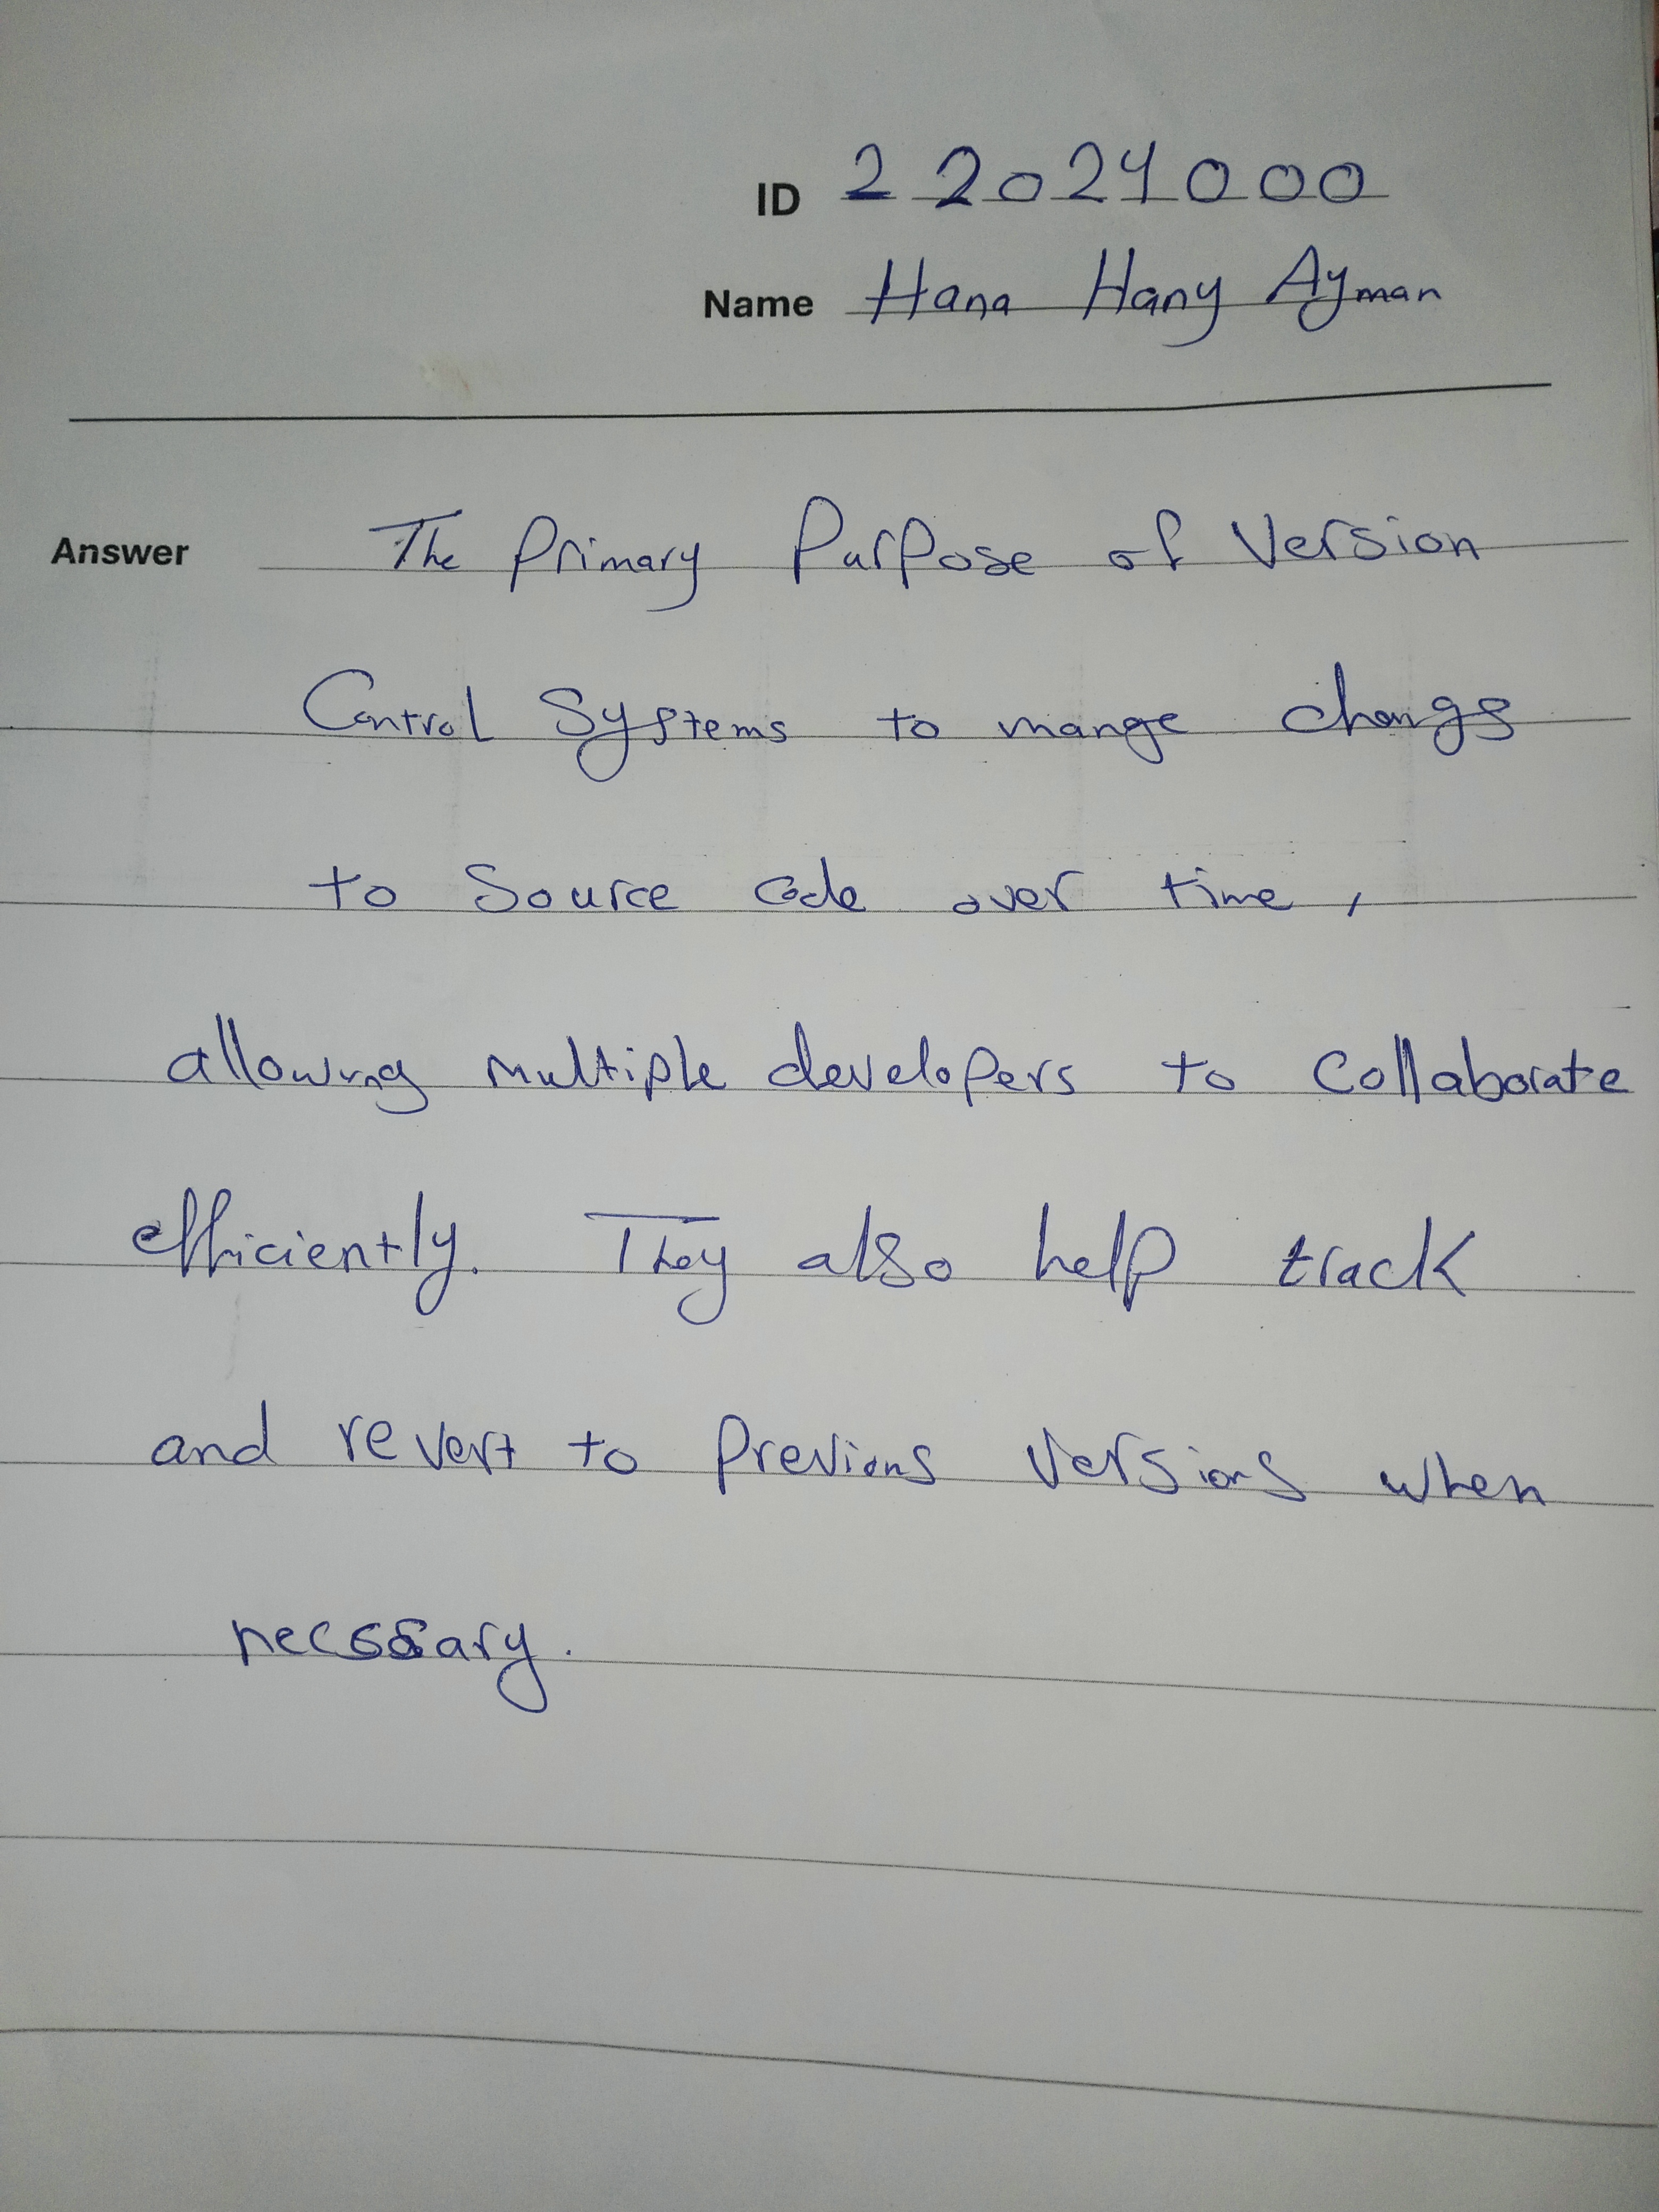 ID 22024000
Name Hana Hany Ayman
Answer The Primary Purpose of Version
Control Systems to mange changs
to Source code over time,
allowing multiple developers to collaborate
efficiently. They also help track
and revert to previous versions when
necssary.